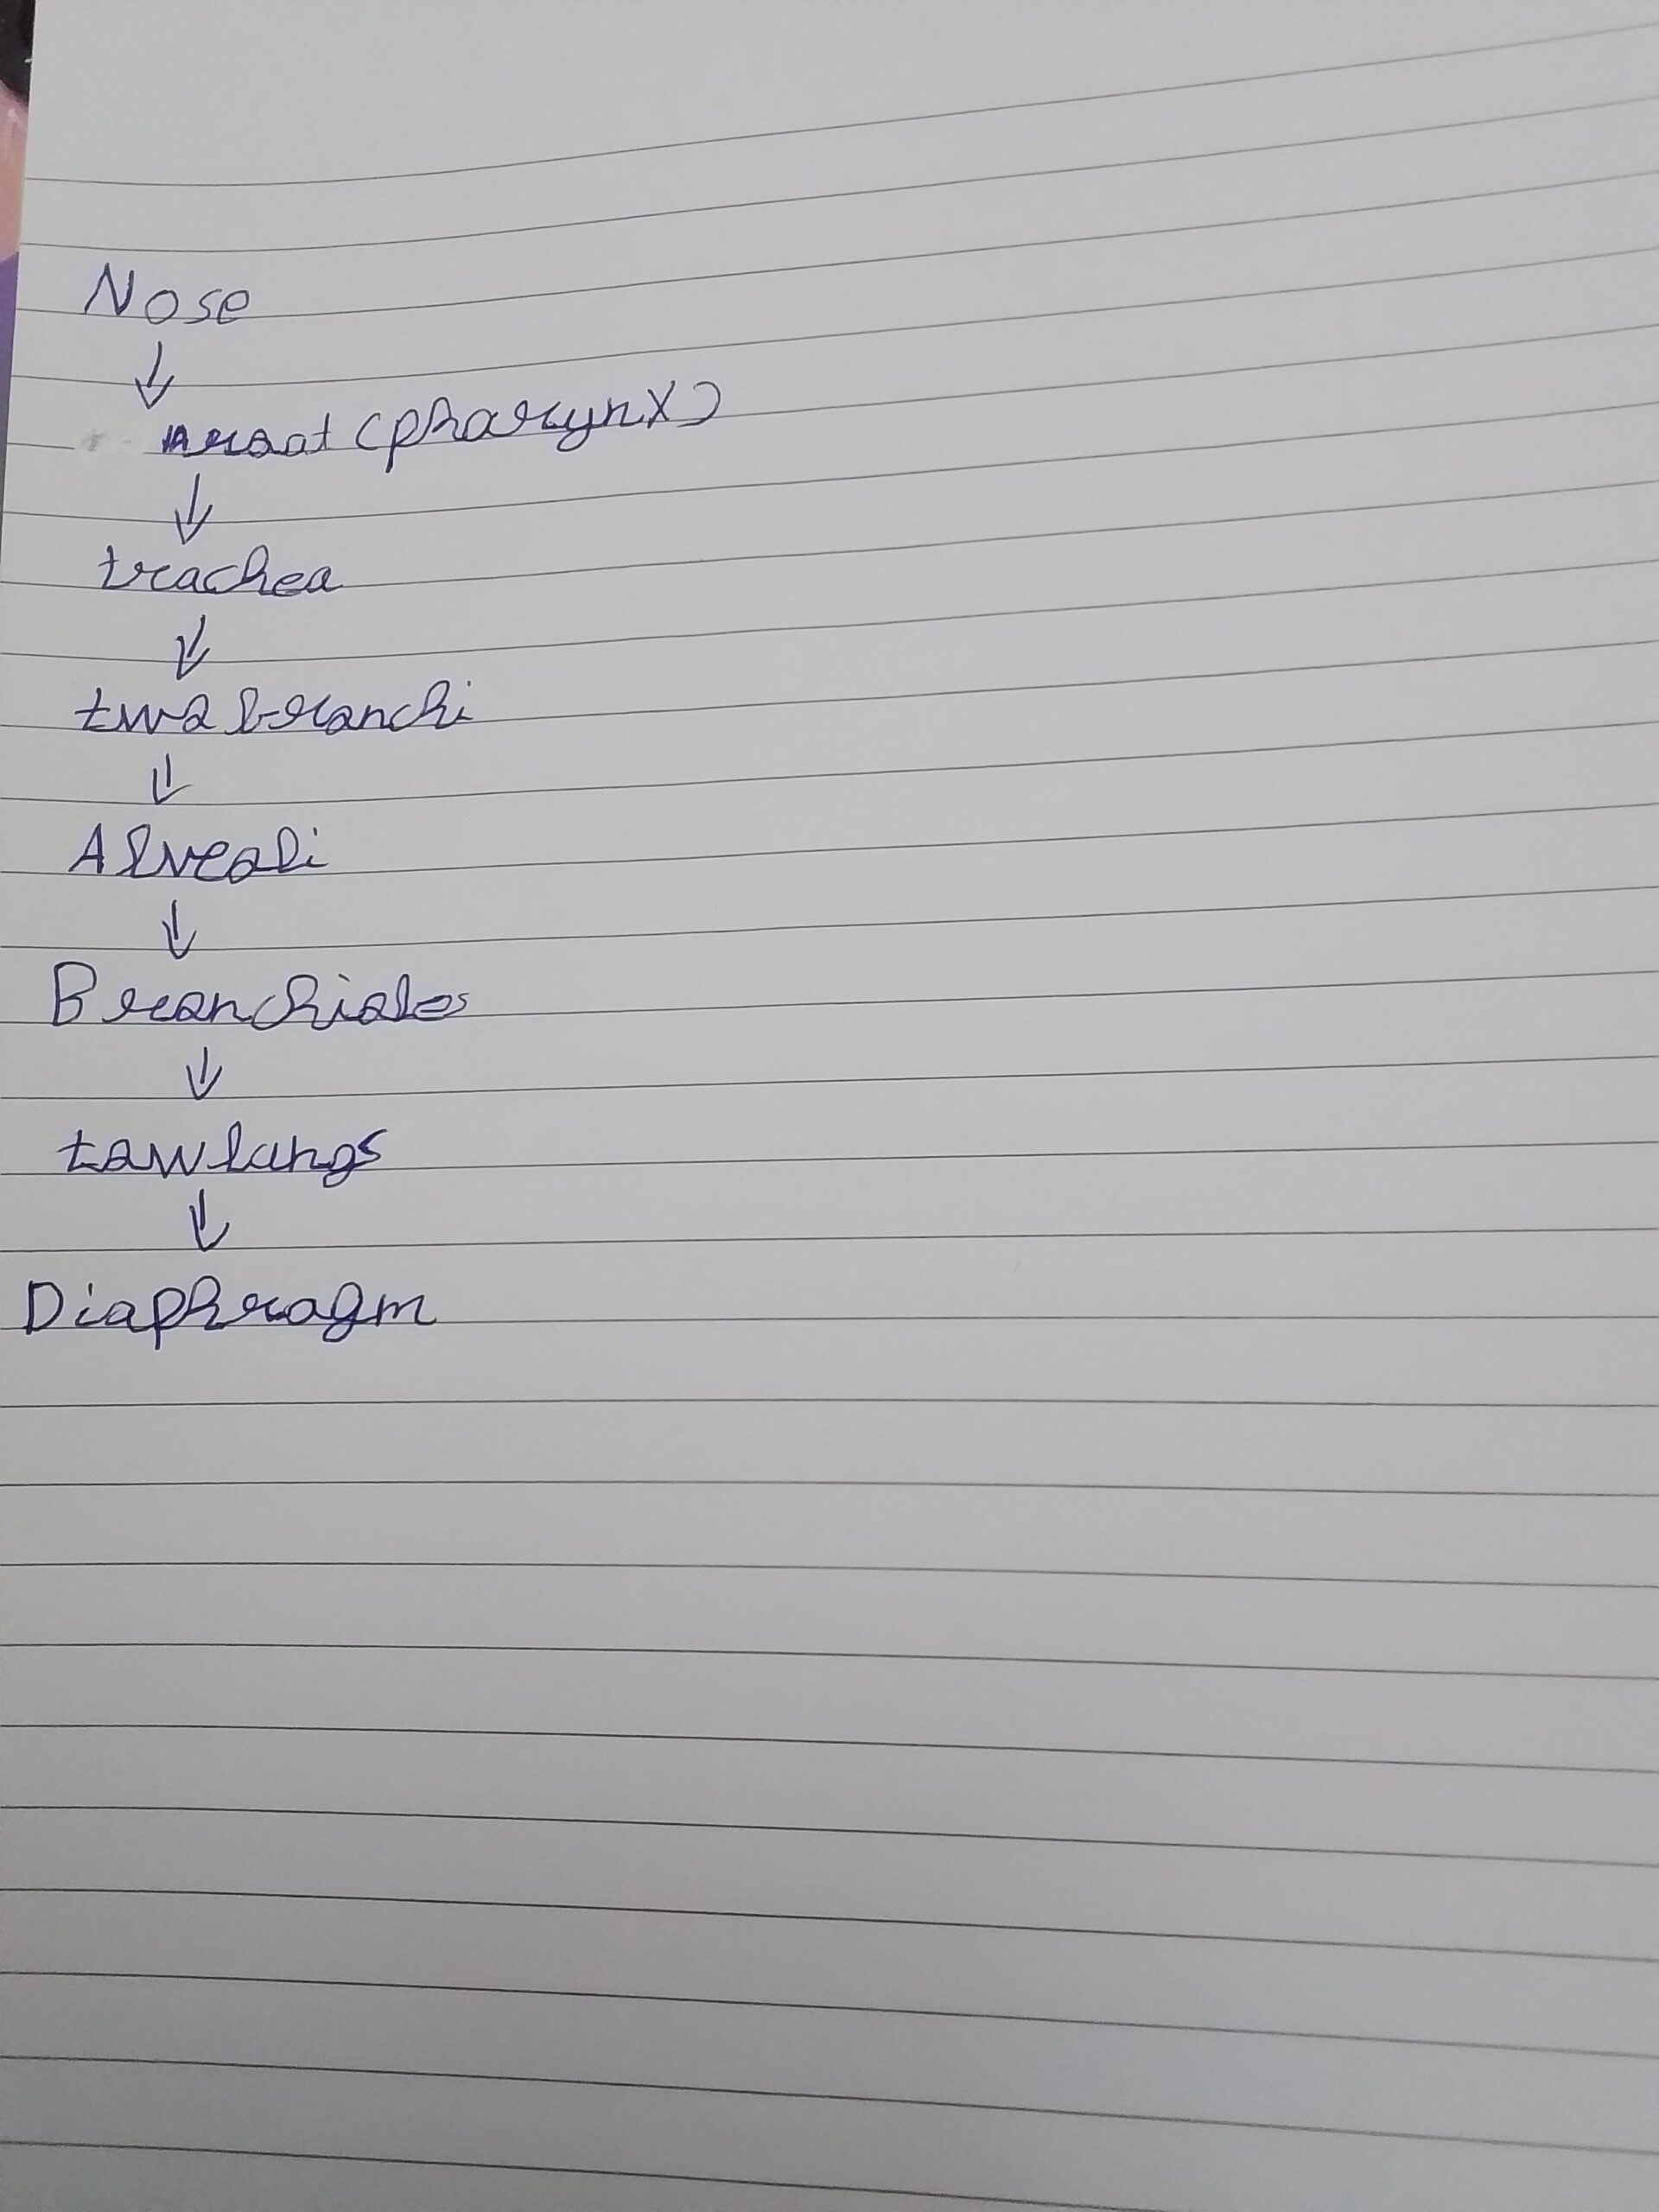 Nose
↓
(pharynx)
↓
trachea
↓
two bronchi
↓
Alveoli
↓
Bronchioles
↓
tow lungs
↓
Diaphragm